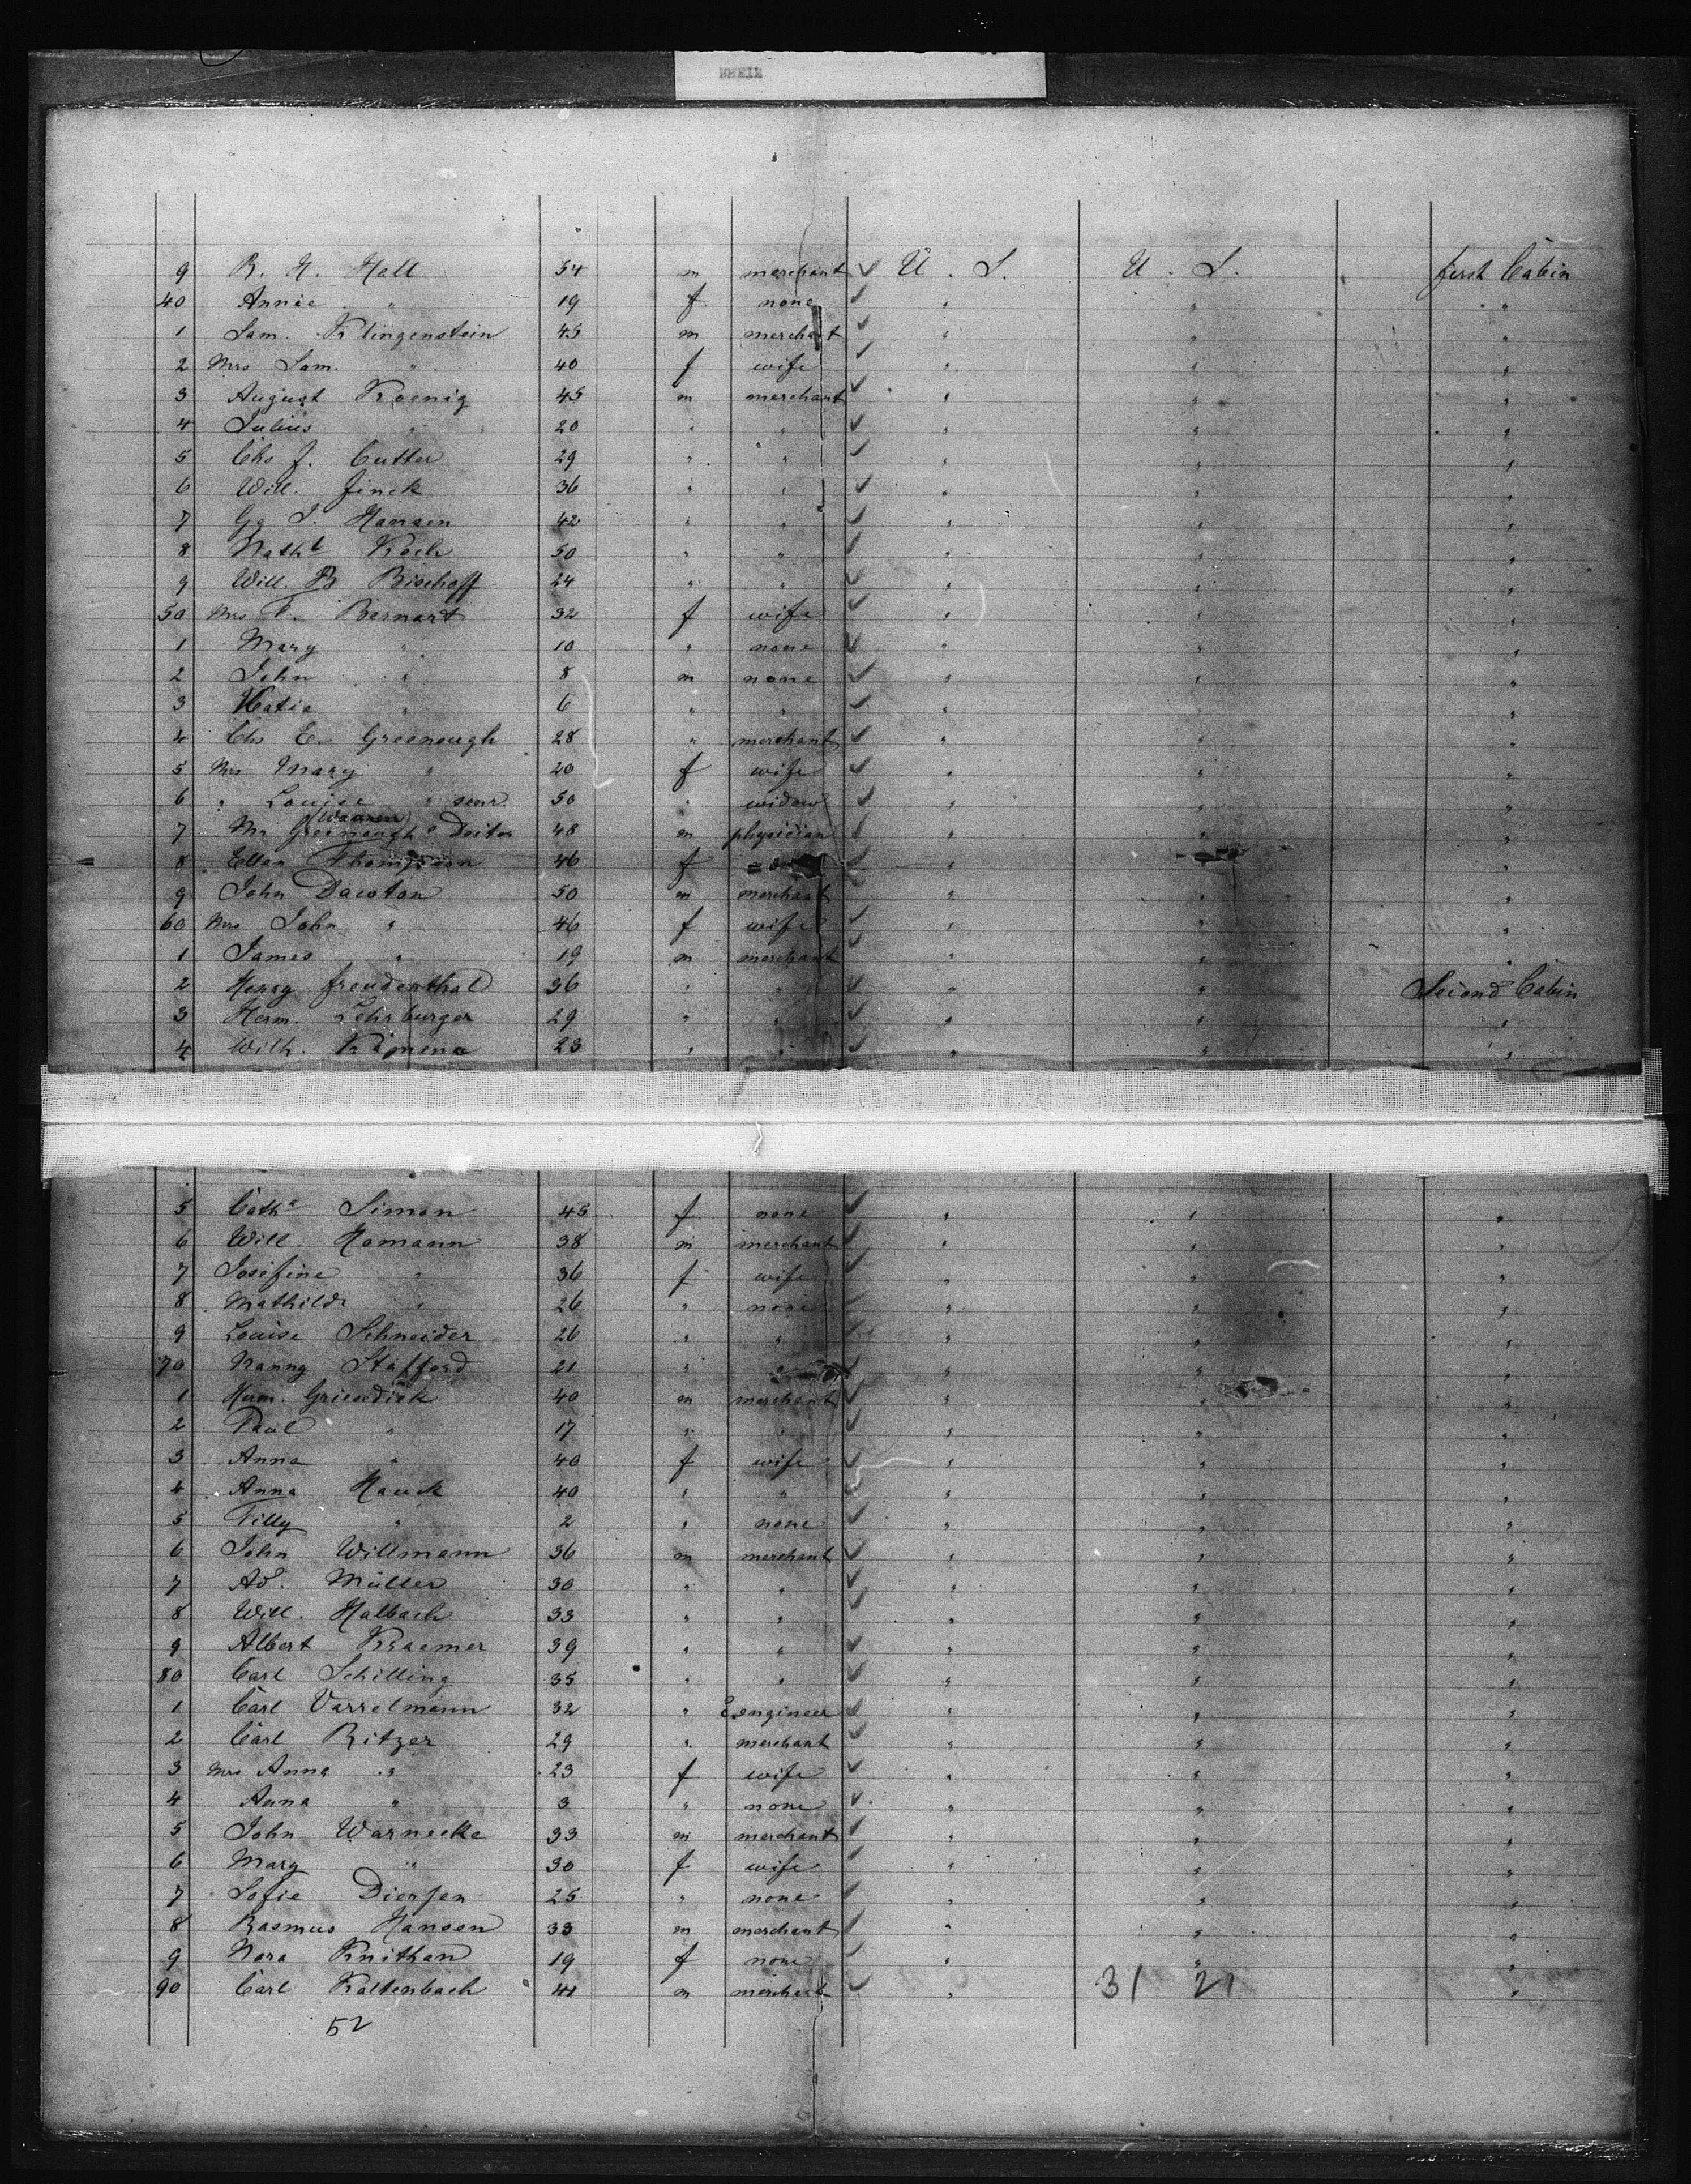 RHEIN
9 R. H. Hall 54 m merchant ✓ U. S. U. S. first Cabin
40 Annie " 19 f none ✓ " " "
1 Sam. Klingenstein 45 m merchant ✓ " " "
2 Mrs Sam. " 40 f wife ✓ " " "
3 August Koenig 45 m merchant ✓ " " "
4 Julius " 20 " " ✓ " " "
5 Chs J. Cutter 29 " " ✓ " " "
6 Will. Finck 36 " " ✓ " " "
7 Gg J. Hansen 42 " " ✓ " " "
8 Nathl Koch 50 " " ✓ " " "
9 Will B Bischoff 24 " " ✓ " " "
50 Mrs F. Bernart 32 f wife ✓ " " "
1 Mary " 10 " none ✓ " " "
2 John " 8 m none ✓ " " "
3 Katie " 6 " " ✓ " " "
4 Chs E. Greenough 28 " merchant ✓ " " "
5 Mrs Mary " 20 f wife ✓ " " "
6 " Louise " senr. 50 " widow ✓ " " "
7 Mr Greenough Doitor 48 m physician ✓ " " "
8 Ellen Thompson 46 f ✓ " "
9 John Dawton 50 m merchant ✓ " " "
60 Mrs John " 46 f wife ✓ " " "
1 James " 19 m merchant ✓ " " "
2 Henry Freudenthal 36 " " ✓ " " Second Cabin
3 Herm. Lehrburger 29 " " ✓ " " "
4 Wilh. Kamena 23 " " ✓ " " "
5 Catha Simon 45 f none ✓ " " "
6 Will. Homann 38 m merchant ✓ " " "
7 Josefine " 36 f wife ✓ " " "
8 Mathilde " 26 " none ✓ " " "
9 Louise Schneider 26 " " ✓ " " "
70 Nanny Stafford 21 " ✓ " "
1 Herm. Griesedick 40 m merchant ✓ " " "
2 Paul " 17 " " ✓ " " "
3 Anna " 40 f wife ✓ " " "
4 Anna Hauck 40 " " ✓ " " "
5 Tilly " 2 " none ✓ " " "
6 John Willmann 36 m merchant ✓ " " "
7 Ad. Müller 30 " " ✓ " " "
8 Will. Halbach 33 " " ✓ " " "
9 Albert Kraemer 39 " " ✓ " " "
80 Carl Schilling 35 " " ✓ " " "
1 Carl Varrelmann 32 " engineer ✓ " " "
2 Carl Ritzer 29 " merchant ✓ " " "
3 Mrs Anna " 23 f wife ✓ " " "
4 Anna " 3 " none ✓ " " "
5 John Warnecke 33 m merchant ✓ " " "
6 Mary " 30 f wife ✓ " " "
7 Sofie Diersen 25 " none ✓ " " "
8 Rasmus Hansen 33 m merchant ✓ " " "
9 Nora Knithan 19 f none ✓ " " "
90 Carl Kaltenbach 41 m merchant ✓ " 31 21 "
52